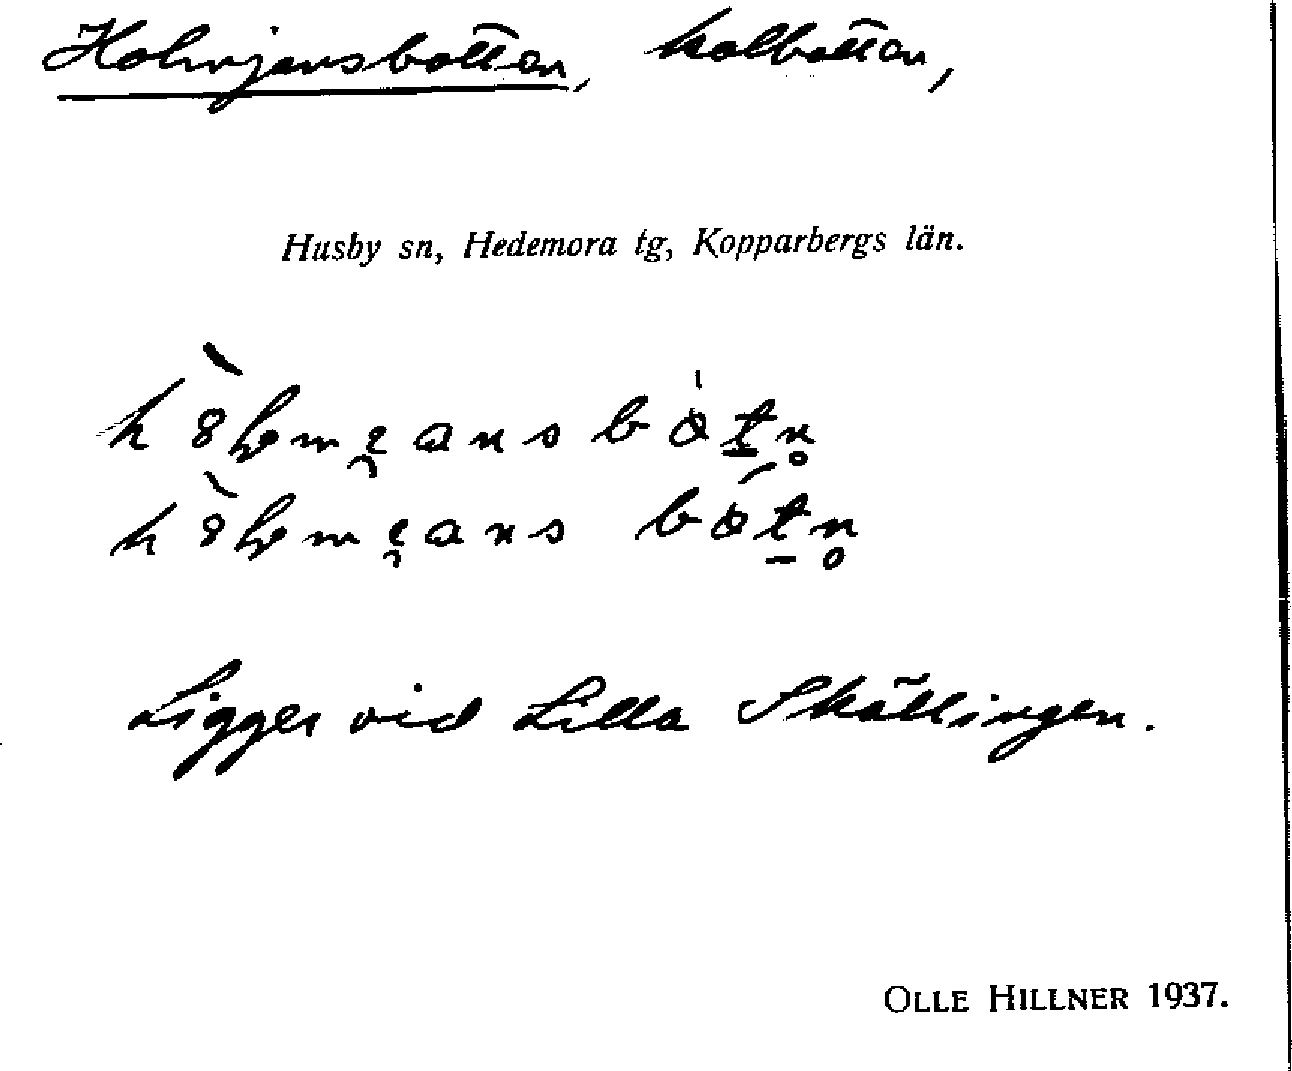 Holmjansbotten, kolbotten,
Husby sn, Hedemora tg, Kopparbergs län.
Ligger vid Lilla Skällingen.
OLLE HILLNER 1937.